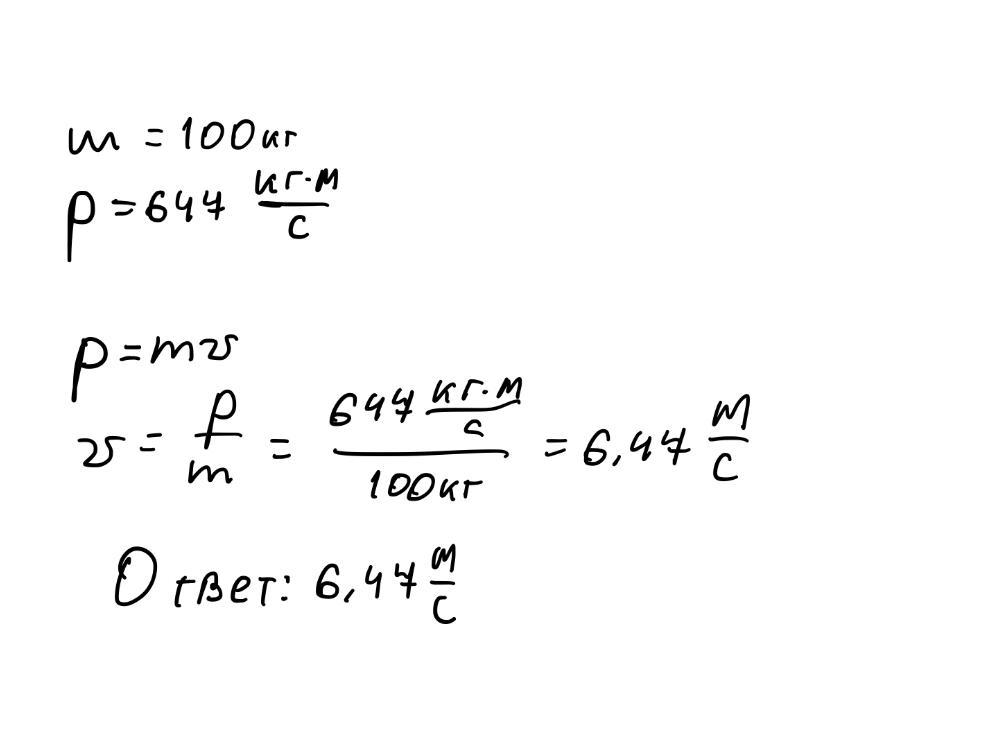 m = 100 кг
p = 647 кг·м/с
p = mv
v = p/m = (647 кг·м/с)/(100 кг) = 6,47 м/с
Ответ: 6,47 м/с